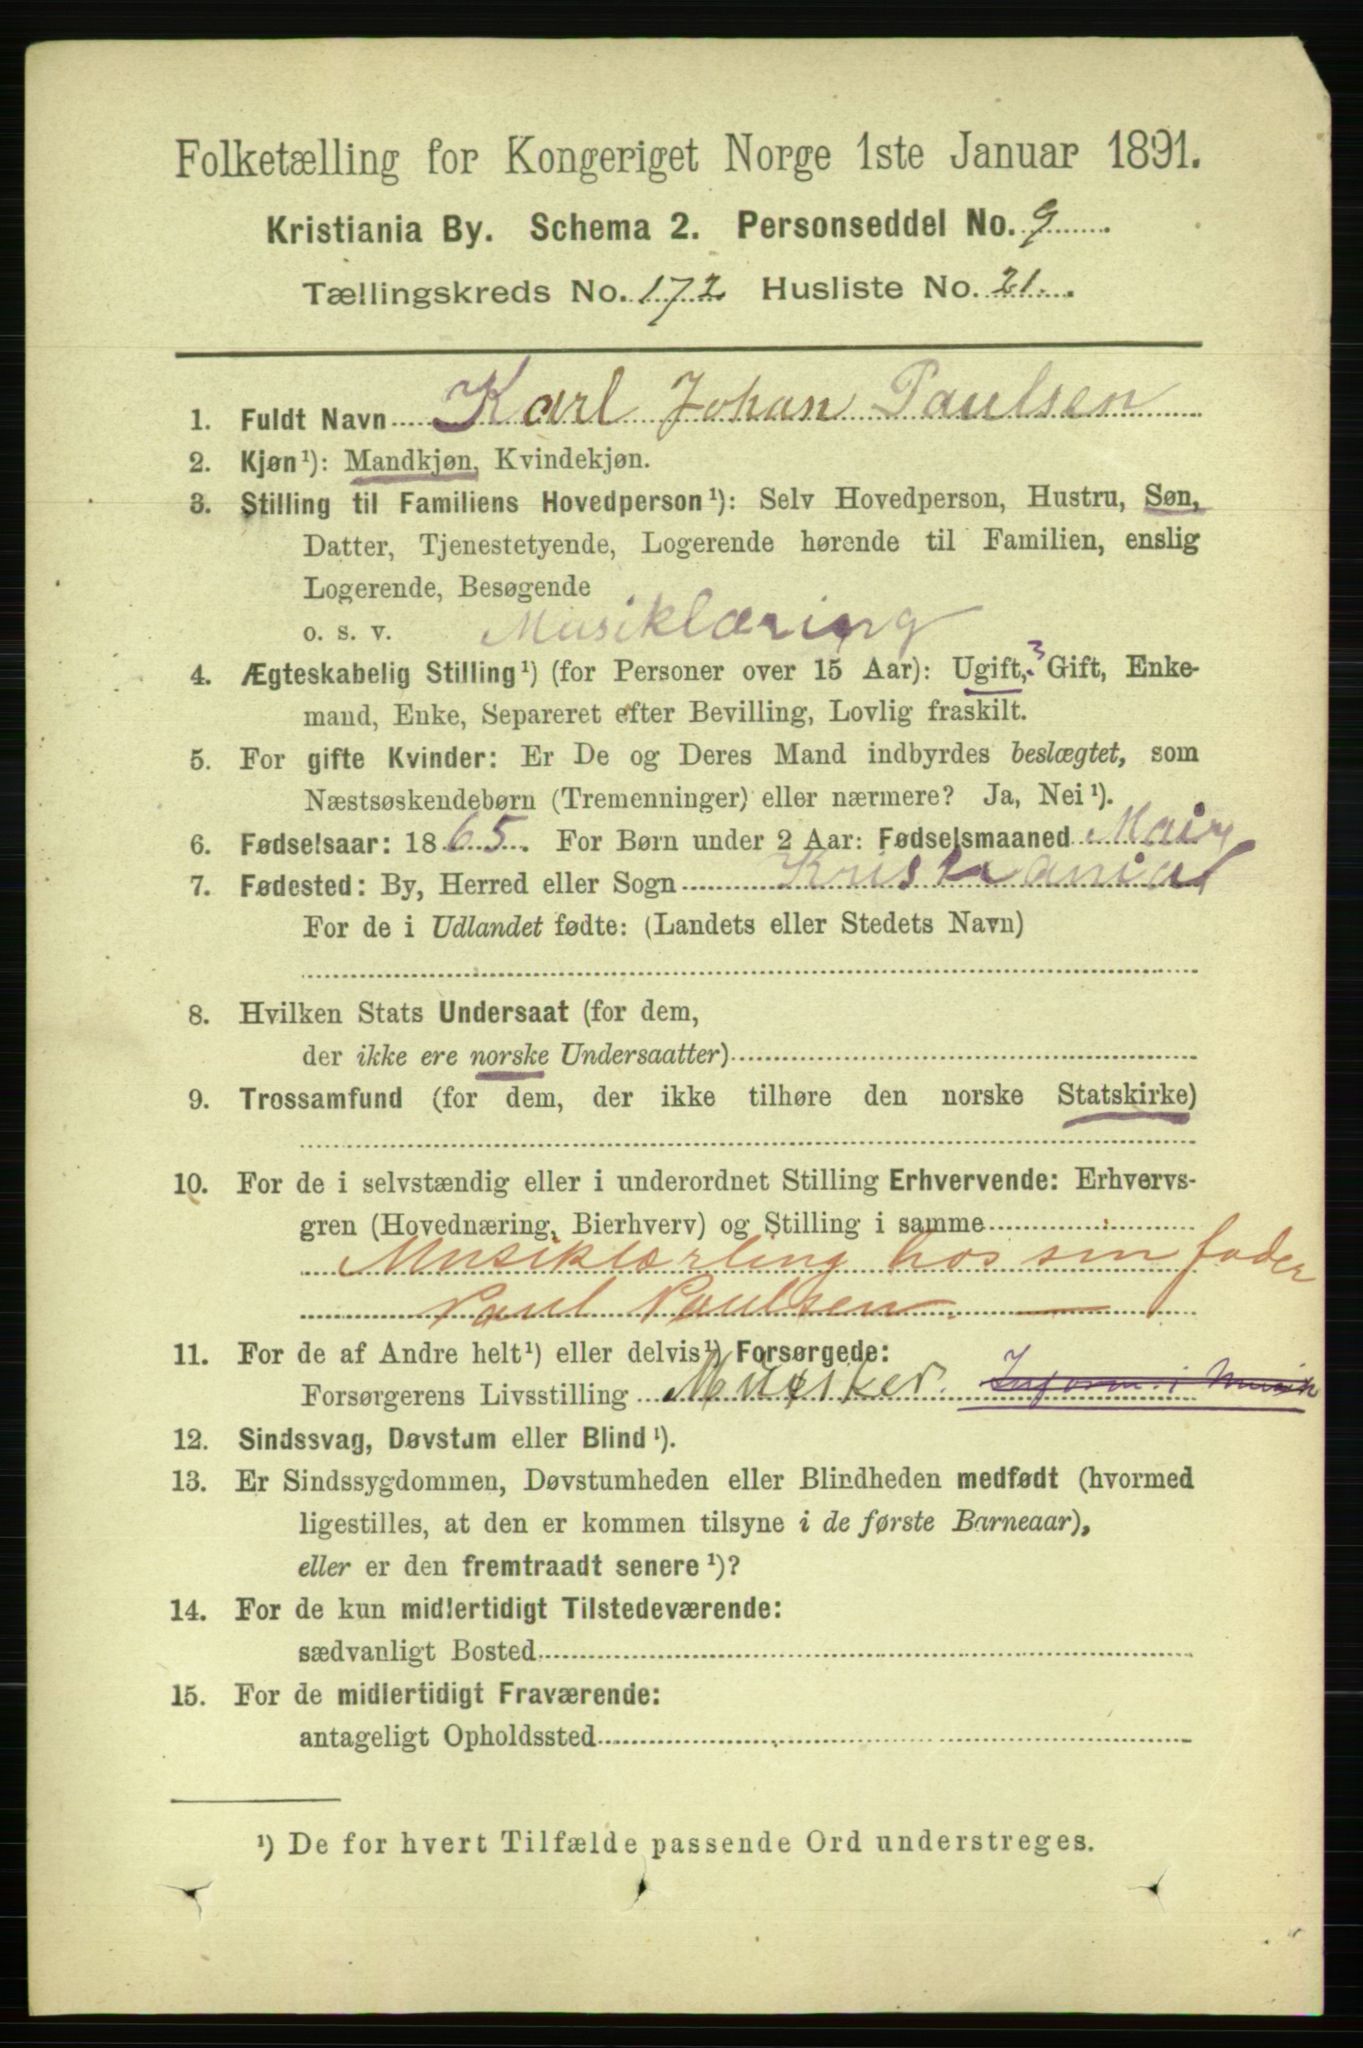 Folketælling for Kongeriget Norge 1ste Januar 1891.
Kristiania By. Schema 2. Personseddel No. 9
Tællingskreds No. 172 Husliste No. 21.
1. Fuldt Navn Karl Johan Paulsen
2. Kjøn¹): Mandkjøn, Kvindekjøn.
3. Stilling til Familiens Hovedperson¹): Selv Hovedperson, Hustru, Søn,
Datter, Tjenestetyende, Logerende hørende til Familien, enslig
Logerende, Besøgende
o. s. v. Musiklæring
4. Ægteskabelig Stilling¹) (for Personer over 15 Aar): Ugift, 3 Gift, Enke-
mand, Enke, Separeret efter Bevilling, Lovlig fraskilt.
5. For gifte Kvinder: Er De og Deres Mand indbyrdes beslægtet, som
Næstsøskendebørn (Tremenninger) eller nærmere? Ja, Nei¹).
6. Fødselsaar: 1865. For Børn under 2 Aar: Fødselsmaaned
7. Fødested: By, Herred eller Sogn Kristiania
For de i Udlandet fødte: (Landets eller Stedets Navn)
8. Hvilken Stats Undersaat (for dem,
der ikke ere norske Undersaatter)
9. Trossamfund (for dem, der ikke tilhøre den norske Statskirke)
10. For de i selvstændig eller i underordnet Stilling Erhvervende: Erhvervs-
gren (Hovednæring, Bierhverv) og Stilling i samme
Musiklærling hos sin fader
Paul Paulsen.
11. For de af Andre helt¹) eller delvis¹) Forsørgede:
Forsørgerens Livsstilling Musiker. Inform. i Musik
12. Sindssvag, Døvstum eller Blind¹).
13. Er Sindssygdommen, Døvstumheden eller Blindheden medfødt (hvormed
ligestilles, at den er kommen tilsyne i de første Barneaar),
eller er den fremtraadt senere¹)?
14. For de kun midlertidigt Tilstedeværende:
sædvanligt Bosted
15. For de midlertidigt Fraværende:
antageligt Opholdssted
¹) De for hvert Tilfælde passende Ord understreges.